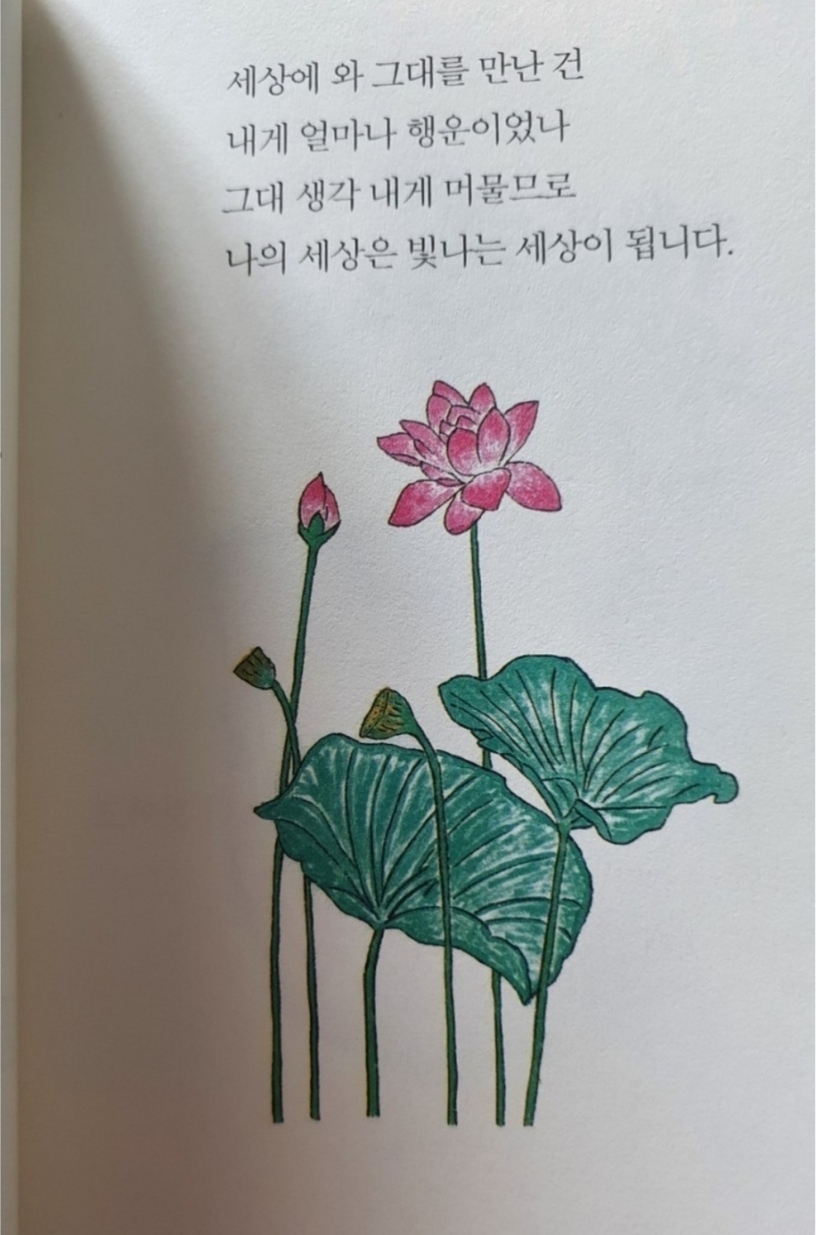 세상에 와 그대를 만난 건
내게 얼마나 행운이었나
그대 생각 내게 머물므로
나의 세상은 빛나는 세상이 됩니다.